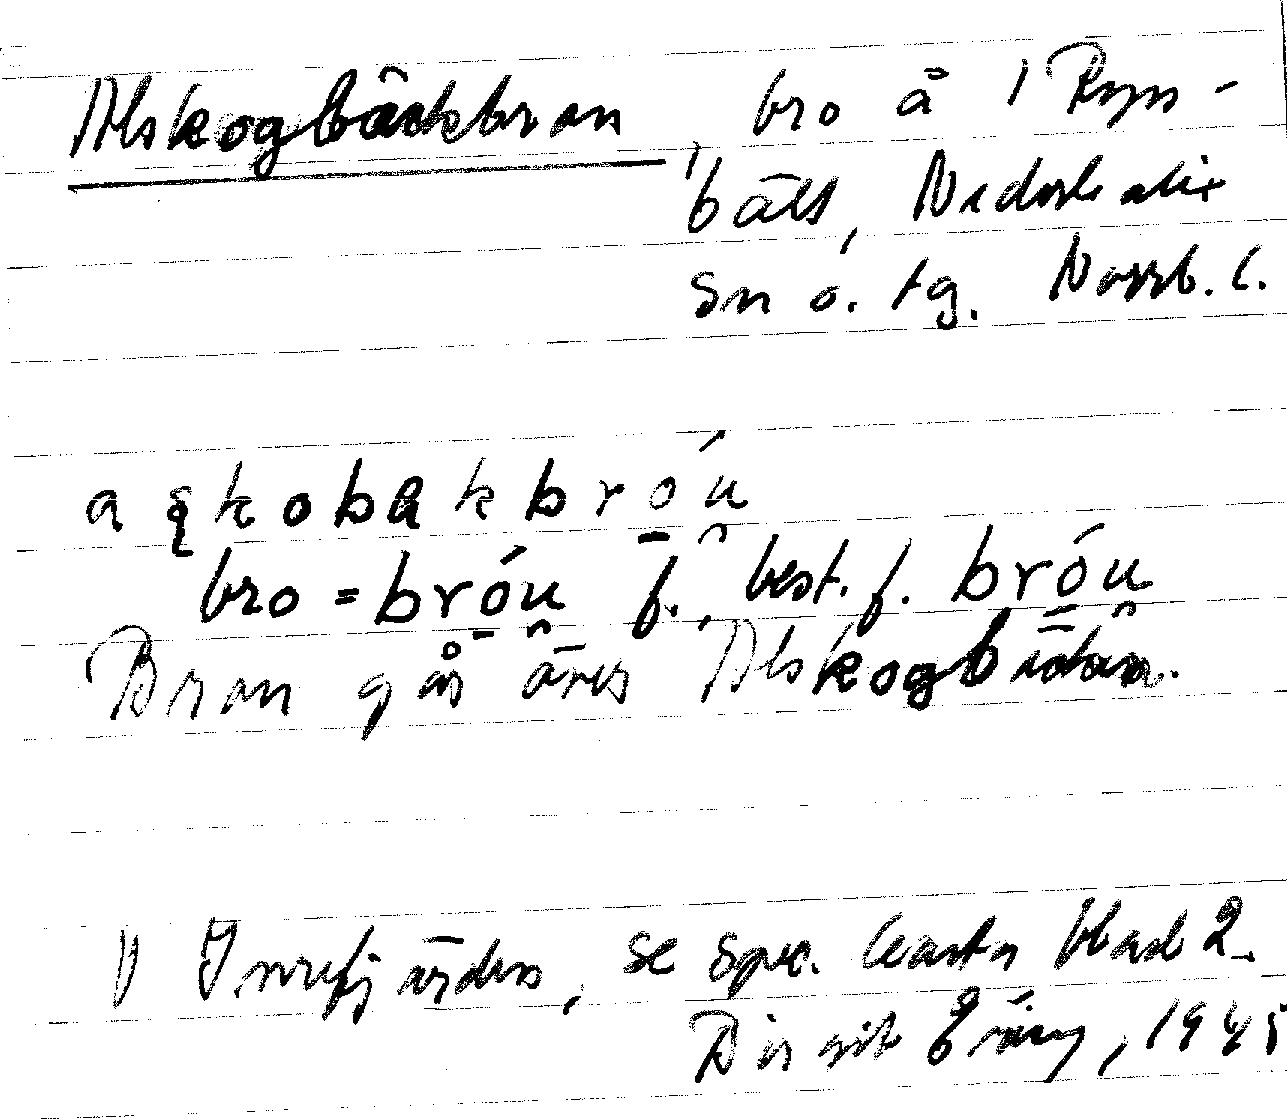 Alskogbäckbron, bro å 1) Ryss-
bält, Nederkalix
sn o. tg. Norrb. l.
aʂkobakbróu
bro = bróu f., best. f. bróu
Bron går över Alskogbäcken.
1) Innefjärden, se spec. karta blad 2.
Birgit 1945